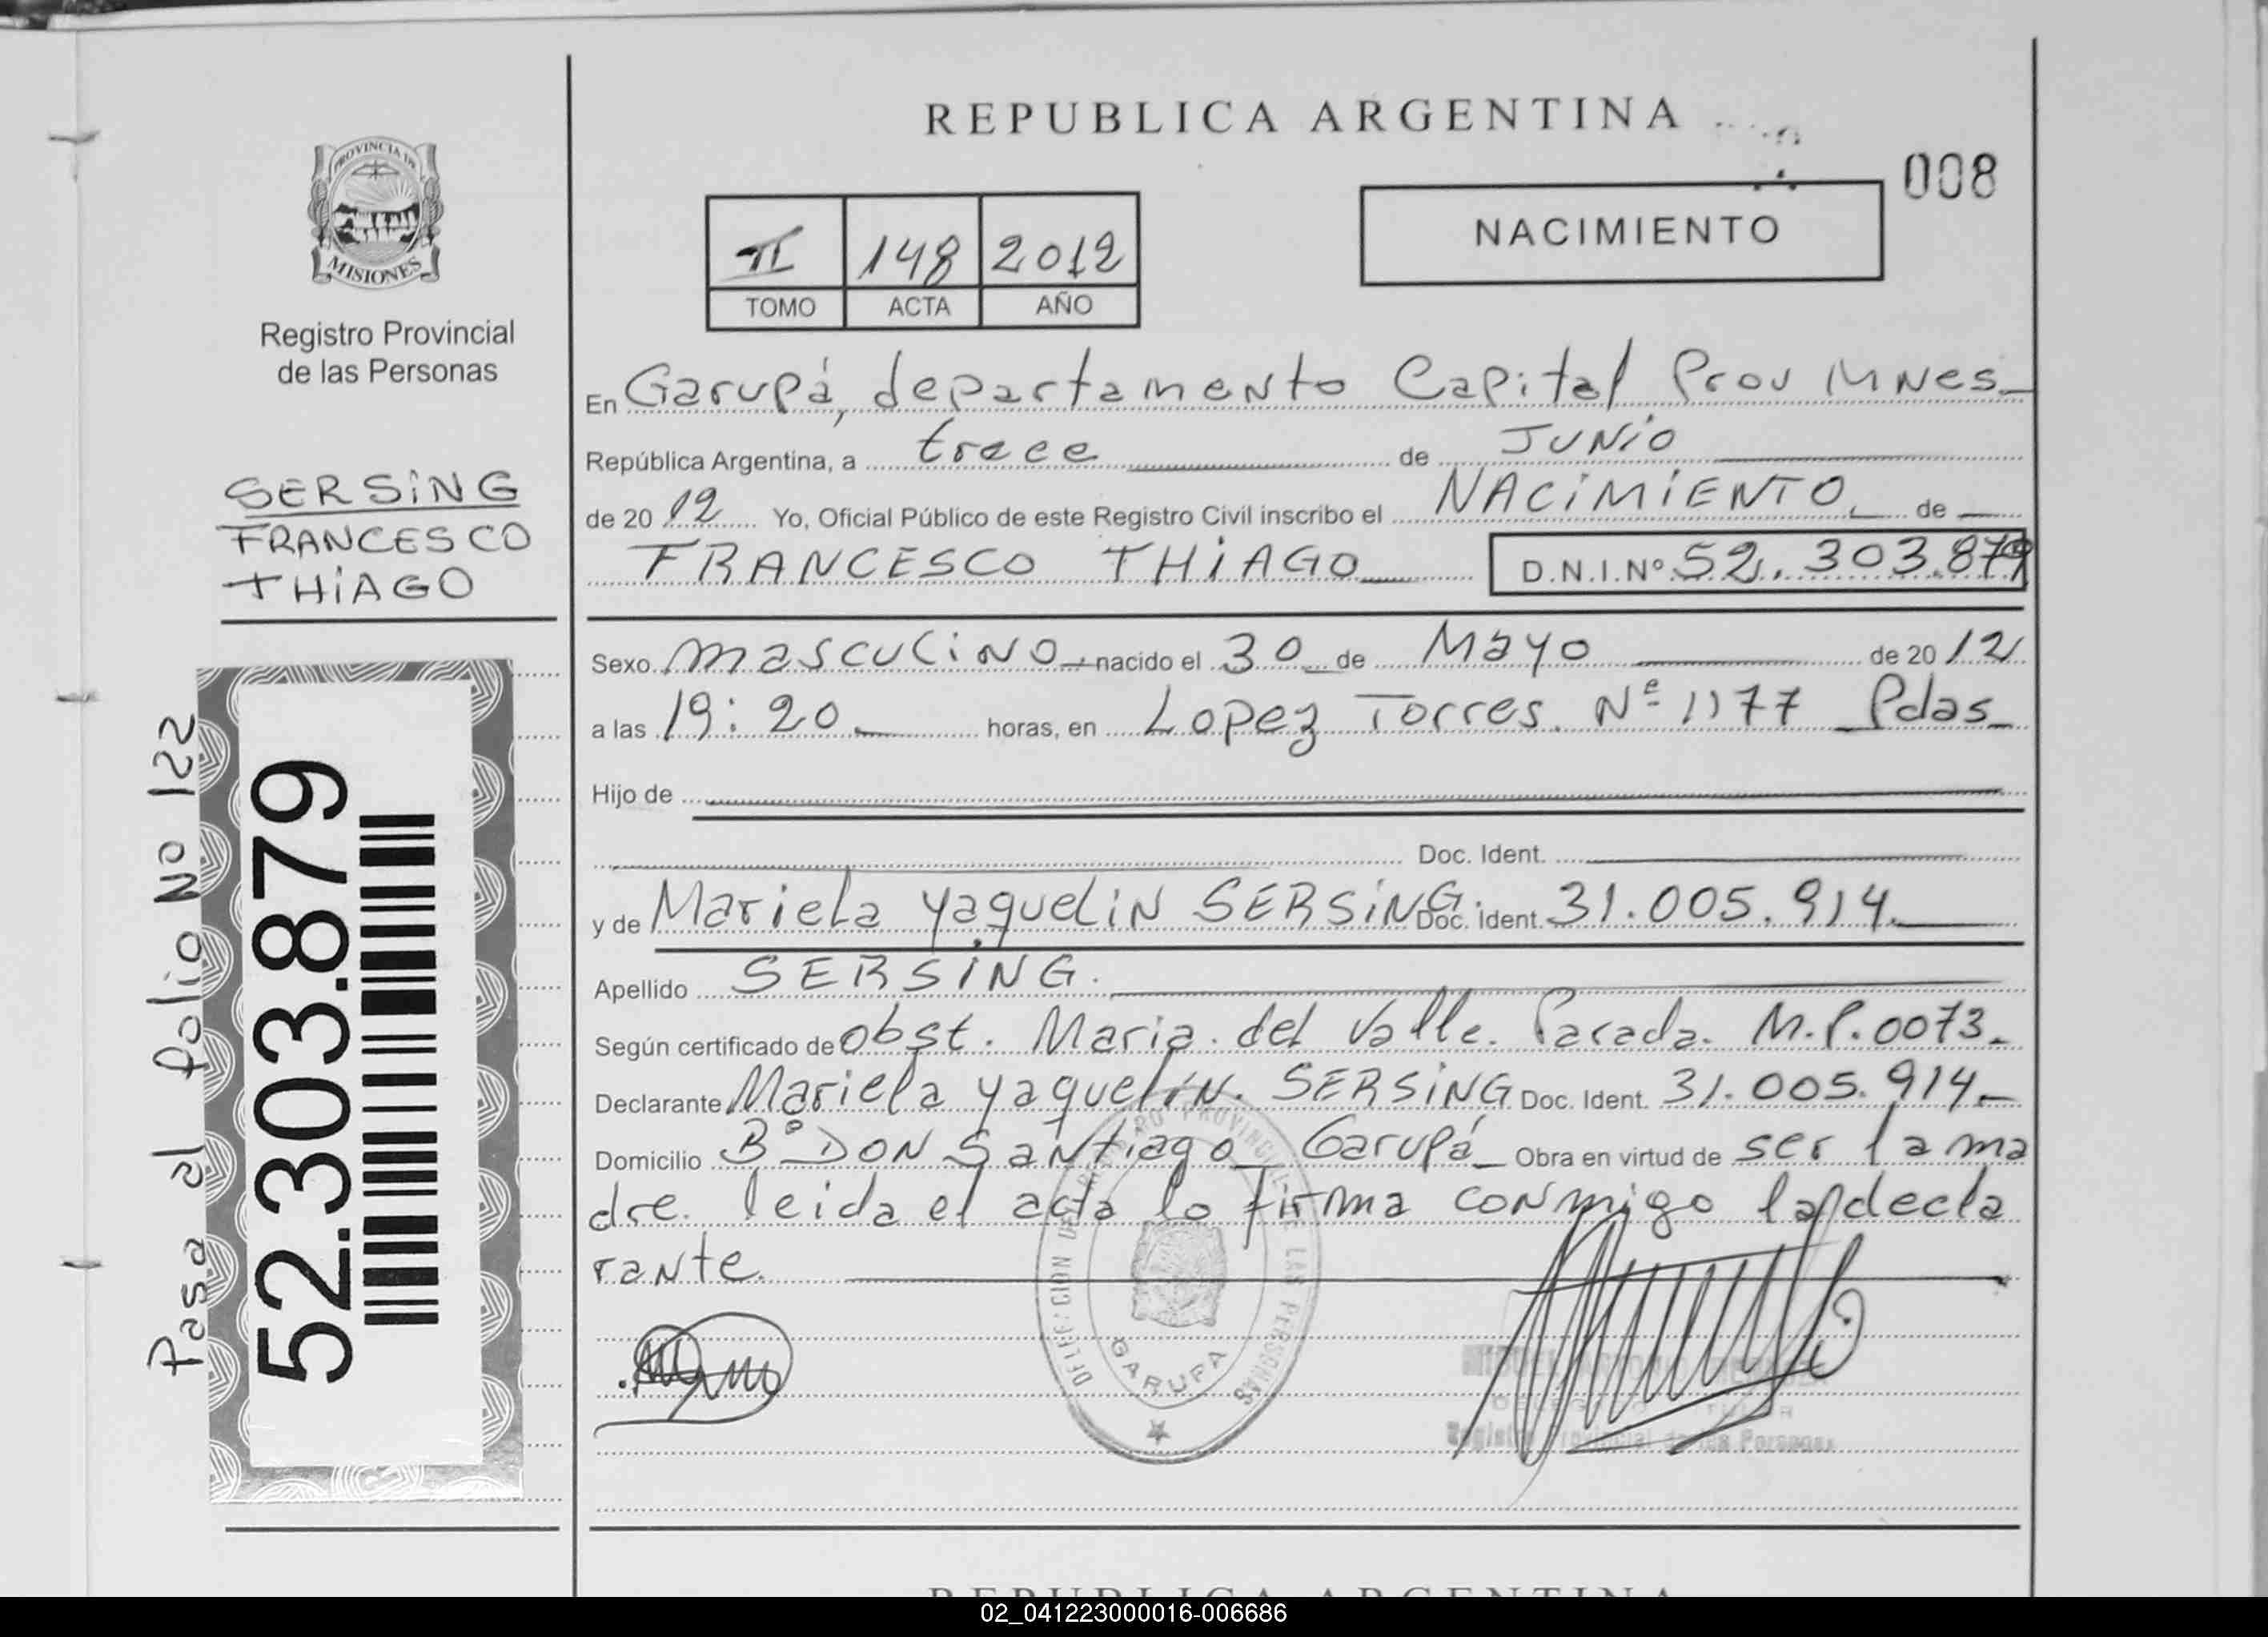 REPUBLICA ARGENTINA
008
PROVINCIA DE
MISIONES
Registro Provincial
de las Personas
II 148 2012
TOMO ACTA AÑO
NACIMIENTO
SERSiNG
FRANCESCO
THiAGO
Pasa al folio No 122
52.303.879
En Garupá, departamento Capital Prov Mnes
República Argentina, a trece de JUNiO
de 20 12 Yo, Oficial Público de este Registro Civil inscribo el NACiMiENTO de
FRANCESCO THiAGO D.N.I.Nº 52.303.879
Sexo masculino nacido el 30 de Mayo de 20 12
a las 19:20 horas, en Lopez Torres Nº 1177 Pdas
Hijo de
Doc. Ident.
y de Mariela yaquelin SERSiNG Doc. Ident. 31.005.914
Apellido SERSiNG.
Según certificado de obst. Maria del Valle Parada. M.P.0073
Declarante Mariela yaquelin. SERSiNG Doc. Ident. 31.005.914
Domicilio Bº DON Santiago Garupá Obra en virtud de ser la ma
dre. leida el acta lo firma conmigo la decla
rante.
DELEGACION DEL REGISTRO PROVINCIAL DE LAS PERSONAS
GARUPA
Registro Provincial de las Personas
REPUBLICA ARGENTINA
02_041223000016-006686